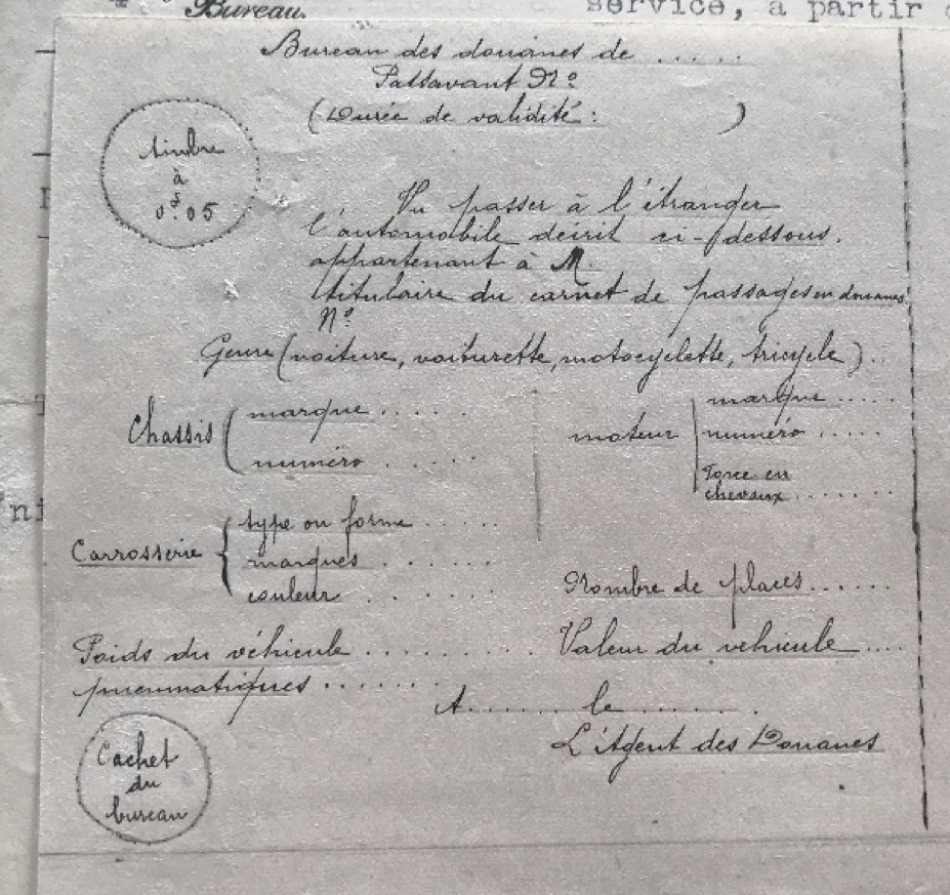 Bureau.
service, à partir
Bureau des douanes de .....
Passavant Nº
(Durée de validité : )
timbre
à
0f.05
Vu passer à l'étranger
l'automobile décrit ci-dessous.
appartenant à M.
titulaire du carnet de passages en douanes
Nº
Genre (voiture, voiturette, motocyclette, tricycle) ..
Chassis
marque .....
numéro .....
moteur
marque .....
numéro .....
Force en
chevaux .......
Carrosserie
type ou forme .....
marques ......
couleur ......
Nombre de places ......
Poids du véhicule .........
Valeur du véhicule ....
pneumatiques .......
A ...... le .......
L'Agent des Douanes
Cachet
du
bureau